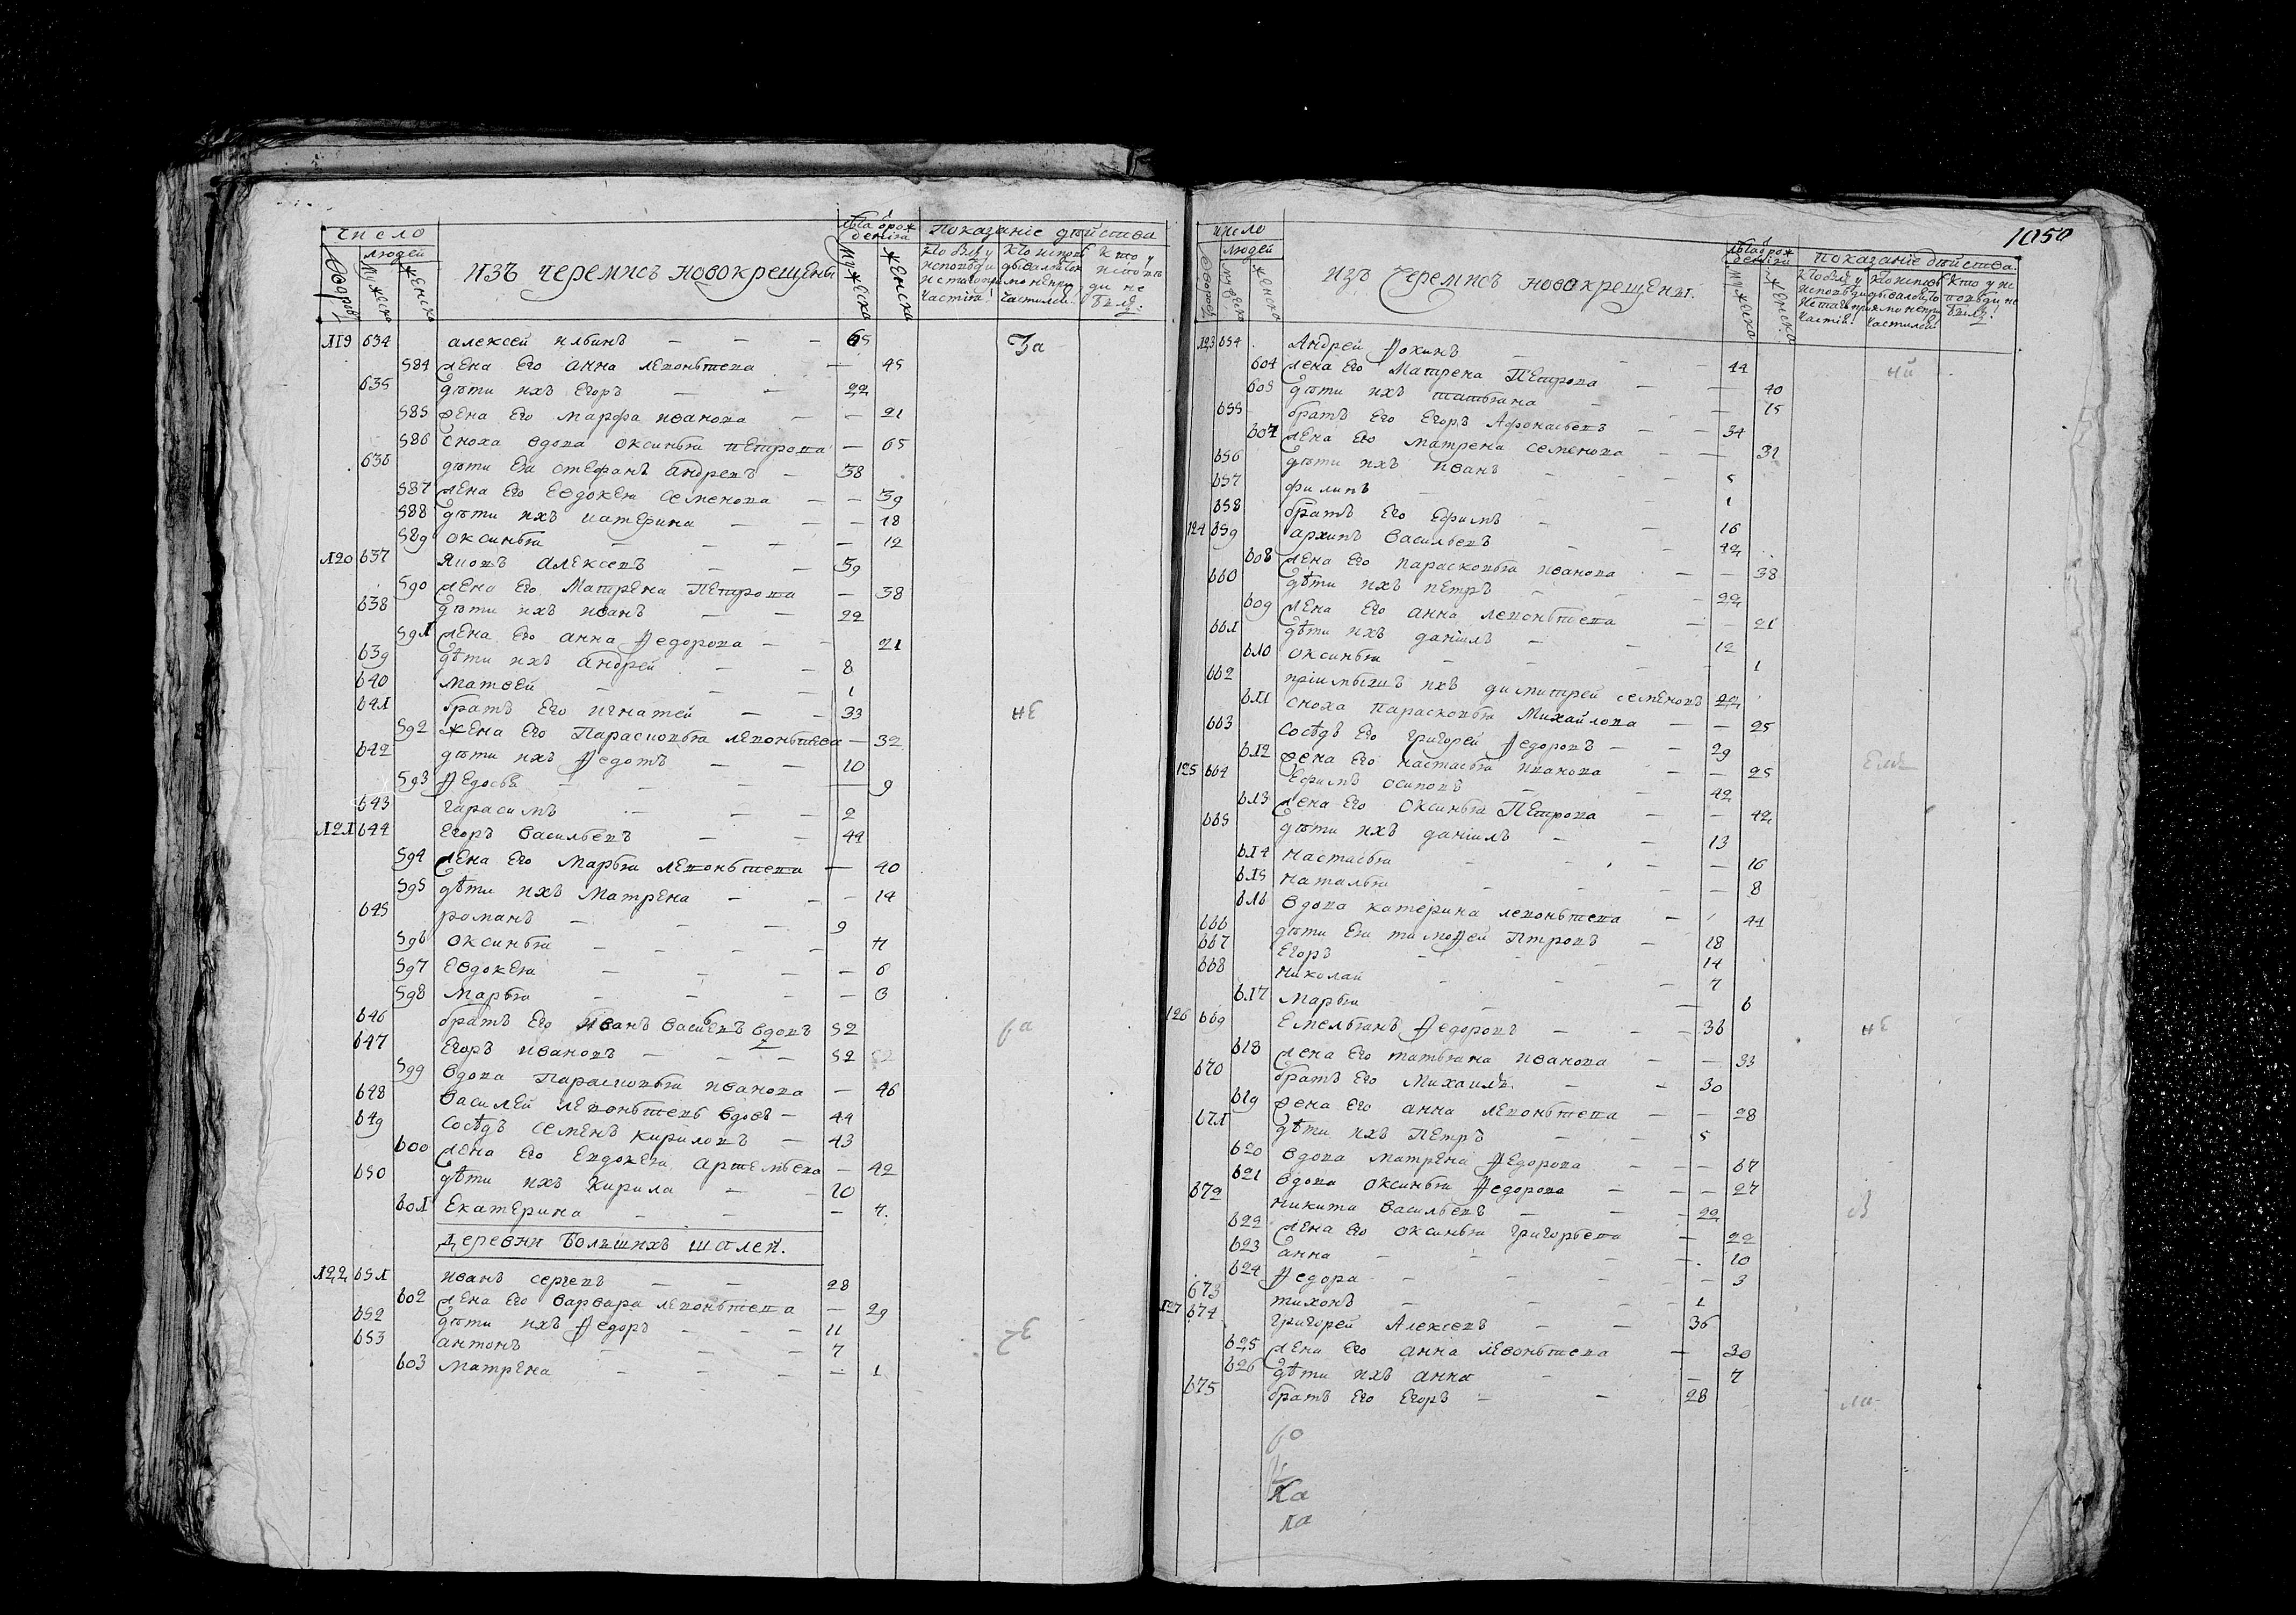 число
людей
Дворовъ
мужеска
женска
изъ черемисъ новокрещены
лѣта ѿ рож
денїя
мужеска
женска
Показанїе дѣйства
119 634 алексей ильинъ — — — 65 За
584 жена Его анна леонтьева — 45
635 дѣти ихъ Егоръ — — 22
585 жена Его марфа иванова — — 21
586 сноха вдова оксинья петрова — 65
636 дѣти Ея стефанъ андреевъ — 38
587 жена Его Евдокея семенова — — 39
588 дѣти ихъ катерина — — — 18
589 оксинья — — — — 12
120 637 Яковъ алексеевъ — — 59
590 жена Его Матрена Петрова — 38
638 дѣти ихъ иванъ — — 22
591 жена Его анна Ѳедорова — — 21
639 дѣти ихъ андрей — — 8
640 матвей — — — 1
641 братъ Его игнатей — — 33 не
592 жена Его Парасковья леонтьева — 32
642 дѣти ихъ Ѳедотъ — — 10
593 Ѳедосья — — — — 9
643 гарасимъ — — — 2
121 644 Егоръ васильевъ — — 44
594 жена Его Марья леонтьева — 40
595 дѣти ихъ Матрена — — — 14
645 романъ — — — 9
596 оксинья — — — — 7
597 Евдокея — — — — 6
598 Марья — — — — 3
646 братъ Его Иванъ васильевъ вдовъ 52 ва
647 Егоръ ивановъ — — — 52
599 вдова Парасковья иванова — 46
648 василей леонтьевъ вдовъ — 44
649 сосѣдъ семенъ кириловъ — 43
600 жена Его Евдокея артемьева — 42
650 дѣти ихъ Кирила — — 10
601 Екатерина — — — — 7
деревни Большихъ шалей.
122 651 иванъ сергеевъ — — 28
602 жена Его варвара леонтьева — 29
652 дѣти ихъ Ѳедоръ — — — 11
653 антонъ — — — 7
603 Матрена — — — — 1
1050
число
людей
Дворовъ
мужеска
женска
изъ Черемисъ новокрещены.
лѣта ѿ рож
денїя
мужеска
женска
Показанїе дѣйства.
123 654 Андрей Ѳокинъ — — — 44 ий
604 жена Его Матрена Петрова — — 40
605 дѣти ихъ татьяна — — 15
655 братъ Его Егоръ Афонасьевъ — — 34
607 жена Его матрена семенова — — 31
656 дѣти ихъ иванъ — — — 5
657 филипъ — — — 1
658 братъ Его Ефимъ — — 16
124 659 архипъ васильевъ — — 42
608 жена Его парасковья иванова — — 38
660 дѣти ихъ петръ — — — 22
609 жена Его анна леонтьева — — 21
661 дѣти ихъ данїилъ — — 12
610 оксинья — — — — 1
662 прїимышъ ихъ димитрей семеновъ 22
611 сноха парасковья Михайлова — — 25
663 сосѣдъ Его григорей Ѳедоровъ — — 29
612 жена Его настасья иванова — — 25
125 664 Ефимъ осиповъ — — 42
613 жена Его оксинья Петрова — — 42
665 дѣти ихъ данїилъ — — 13
614 настасья — — — — 16
615 наталья — — — — 8
616 вдова катерина леонтьева — — 44
666 дѣти Ея тимоѳей Птровъ — 18
667 Егоръ — — — 14
668 николай — — — 7
617 Марья — — — 6
126 669 Емельянъ Ѳедоровъ — — — 36 не
618 жена Его татьяна иванова — — 33
670 братъ Его Михаилъ — — 30
619 жена Его анна леонтьева — — 28
671 дѣти ихъ Петръ — — — 5
620 вдова матрена Ѳедорова — — — 67
621 вдова оксинья Ѳедорова — — — 27
672 никита васильевъ — — — 22
622 жена Его оксинья григорьева — 22
623 анна — — — — 10
624 Ѳедора — — — — 3
673 тихонъ — — — 1
127 674 григорей Алексеевъ — — 36
625 жена Его анна левонтьева — 30
626 дѣти ихъ анна — — 7
675 братъ Его Егоръ — — 28
во
ка
ла